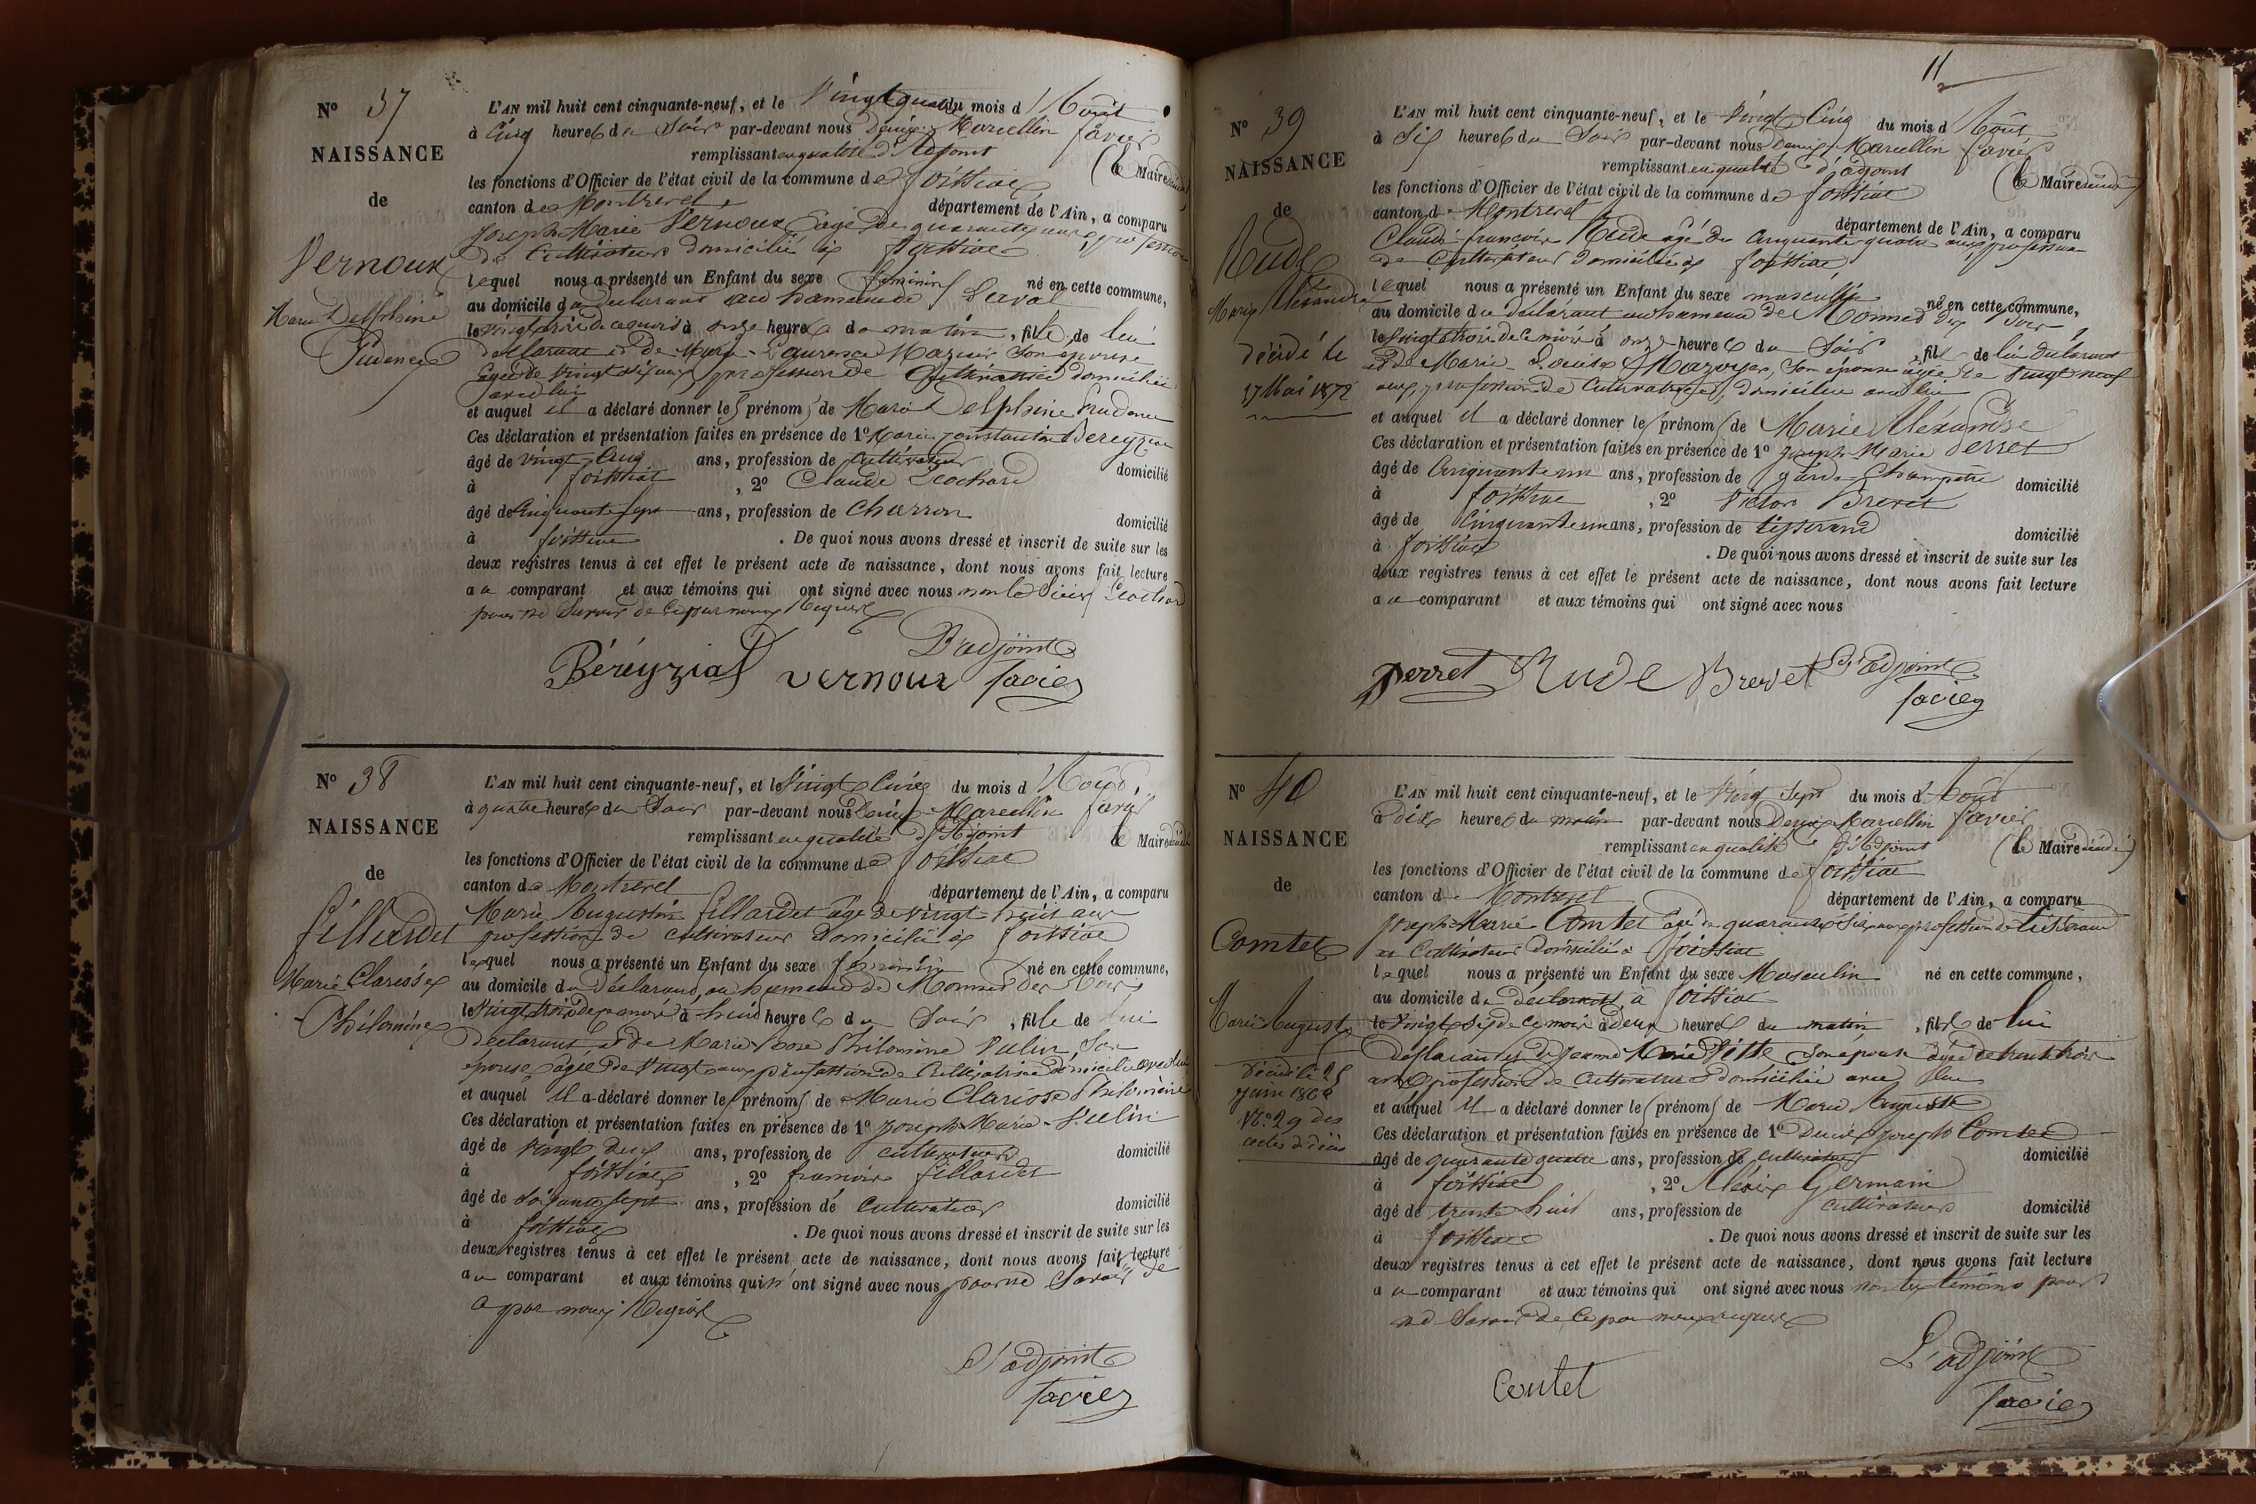 N° 37
NAISSANCE
de
Vernoux
Marie Delphine
Prudence
L'AN mil huit cent cinquante-neuf, et le Vingt quatre du mois d'Août
à Cinq heures du Soir par-devant nous Denis Marcellin favier
remplissant en qualité d'Adjoint (le Maire
les fonctions d'Officier de l'état civil de la commune de foissiat
canton de Montrevel département de l'Ain, a comparu
Joseph Marie Vernoux âgé de quarante ans profession
de Cultivateur domicilié à foissiat
lequel nous a présenté un Enfant du sexe féminin né en cette commune,
au domicile du déclarant au hameau de
le vingt trois de ce mois à onze heures du matin, fille de lui
déclarant et de Marie Laurence son épouse
âgée de vingt six ans profession de Cultivatrice domiciliée
avec lui
et auquel il a déclaré donner les prénoms de Marie Delphine Prudence
Ces déclaration et présentation faites en présence de 1° Marie Constantin Béréyziat
âgé de vingt cinq ans, profession de cultivateur domicilié
à foissiat, 2° Claude Cochard
âgé de Cinquante sept ans, profession de Charron domicilié
à foissiat. De quoi nous avons dressé et inscrit de suite sur les
deux registres tenus à cet effet le présent acte de naissance, dont nous avons fait lecture
au comparant et aux témoins qui ont signé avec nous non le Sieur Cochard
pour ne Savoir de ce par nous Requis
L'adjoint
Béréyziat Vernoux favier
N° 38
NAISSANCE
de
fillardet
Marie Clarisse
Philomène
L'AN mil huit cent cinquante-neuf, et le Vingt Cinq du mois d'Août,
à quatre heures du Soir par-devant nous Denis Marcellin favier
remplissant en qualité d'Adjoint le Maire
les fonctions d'Officier de l'état civil de la commune de foissiat
canton de Montrevel département de l'Ain, a comparu
Marie Augustin fillardet âgé de vingt huit ans
profession de cultivateur domicilié à foissiat
lequel nous a présenté un Enfant du sexe féminin né en cette commune,
au domicile du déclarant, au hameau de
le Vingt trois de ce mois à huit heures du Soir, fille de lui
déclarant et de Marie Rose Philomène Velin, Son
épouse âgée de Vingt ans profession de Cultivatrice domiciliée avec lui
et auquel il a déclaré donner les prénoms de Marie Clarisse Philomène
Ces déclaration et présentation faites en présence de 1° Joseph Marie Velin
âgé de Vingt deux ans, profession de cultivateur domicilié
à foissiat, 2° françois fillardet
âgé de Soixante sept ans, profession de Cultivateur domicilié
à foissiat. De quoi nous avons dressé et inscrit de suite sur les
deux registres tenus à cet effet le présent acte de naissance, dont nous avons fait lecture
au comparant et aux témoins qui n'ont signé avec nous pour ne Savoir de
ce par nous Requis
L'adjoint
favier
11
N° 39
NAISSANCE
de
Rude
Marie Alexandre
décédé le
17 Mai 1872
L'AN mil huit cent cinquante-neuf, et le Vingt Cinq du mois d'Août
à Six heures du Soir par-devant nous Denis Marcellin favier
remplissant en qualité d'adjoint (le Maire
les fonctions d'Officier de l'état civil de la commune de foissiat
canton de Montrevel département de l'Ain, a comparu
Claude françois Rude âgé de Cinquante quatre ans, profession
de Cultivateur domicilié à foissiat
lequel nous a présenté un Enfant du sexe masculin né en cette commune,
au domicile du déclarant au hameau de
le Vingt trois de ce mois à onze heures du Soir, fils de lui déclarant
et de Marie Louise Mazoyer, Son épouse âgée de Vingt neuf
ans, profession de Cultivatrice, domiciliée avec lui
et auquel il a déclaré donner les prénoms de Marie Alexandre
Ces déclaration et présentation faites en présence de 1° Joseph Marie Perret
âgé de Cinquante un ans, profession de garde Champêtre domicilié
à foissiat, 2° Victor Brevet
âgé de Cinquante un ans, profession de tisserand domicilié
à foissiat. De quoi nous avons dressé et inscrit de suite sur les
deux registres tenus à cet effet le présent acte de naissance, dont nous avons fait lecture
au comparant et aux témoins qui ont signé avec nous
Perret Rude Brevet L'adjoint
favier
N° 40
NAISSANCE
de
Comtet
Marie Auguste
Décédé le 25
juin 186
N° 29 des
actes de décès
L'AN mil huit cent cinquante-neuf, et le Vingt Sept du mois d'Août
à Dix heures du matin par-devant nous Denis Marcellin favier
remplissant en qualité d'Adjoint (le Maire
les fonctions d'Officier de l'état civil de la commune de foissiat
canton de Montrevel département de l'Ain, a comparu
Joseph Marie Comtet âgé de quarante Six ans profession de tisserand
et Cultivateur domicilié à foissiat
lequel nous a présenté un Enfant du sexe Masculin né en cette commune,
au domicile du déclarant à foissiat
le Vingt Six de ce mois à deux heures du matin, fils de lui
déclarant et de Jeanne Marie Pitte Son épouse âgée de trente trois
ans profession de Cultivatrice domiciliée avec lui
et auquel il a déclaré donner les prénoms de Marie Auguste
Ces déclaration et présentation faites en présence de 1° Denis Joseph Comtet
âgé de quarante quatre ans, profession de cultivateur domicilié
à foissiat, 2° Alexis Germain
âgé de trente huit ans, profession de cultivateur domicilié
à foissiat. De quoi nous avons dressé et inscrit de suite sur les
deux registres tenus à cet effet le présent acte de naissance, dont nous avons fait lecture
au comparant et aux témoins qui ont signé avec nous non les témoins pour
ne Savoir de ce par nous requis
L'adjoint
Contet favier